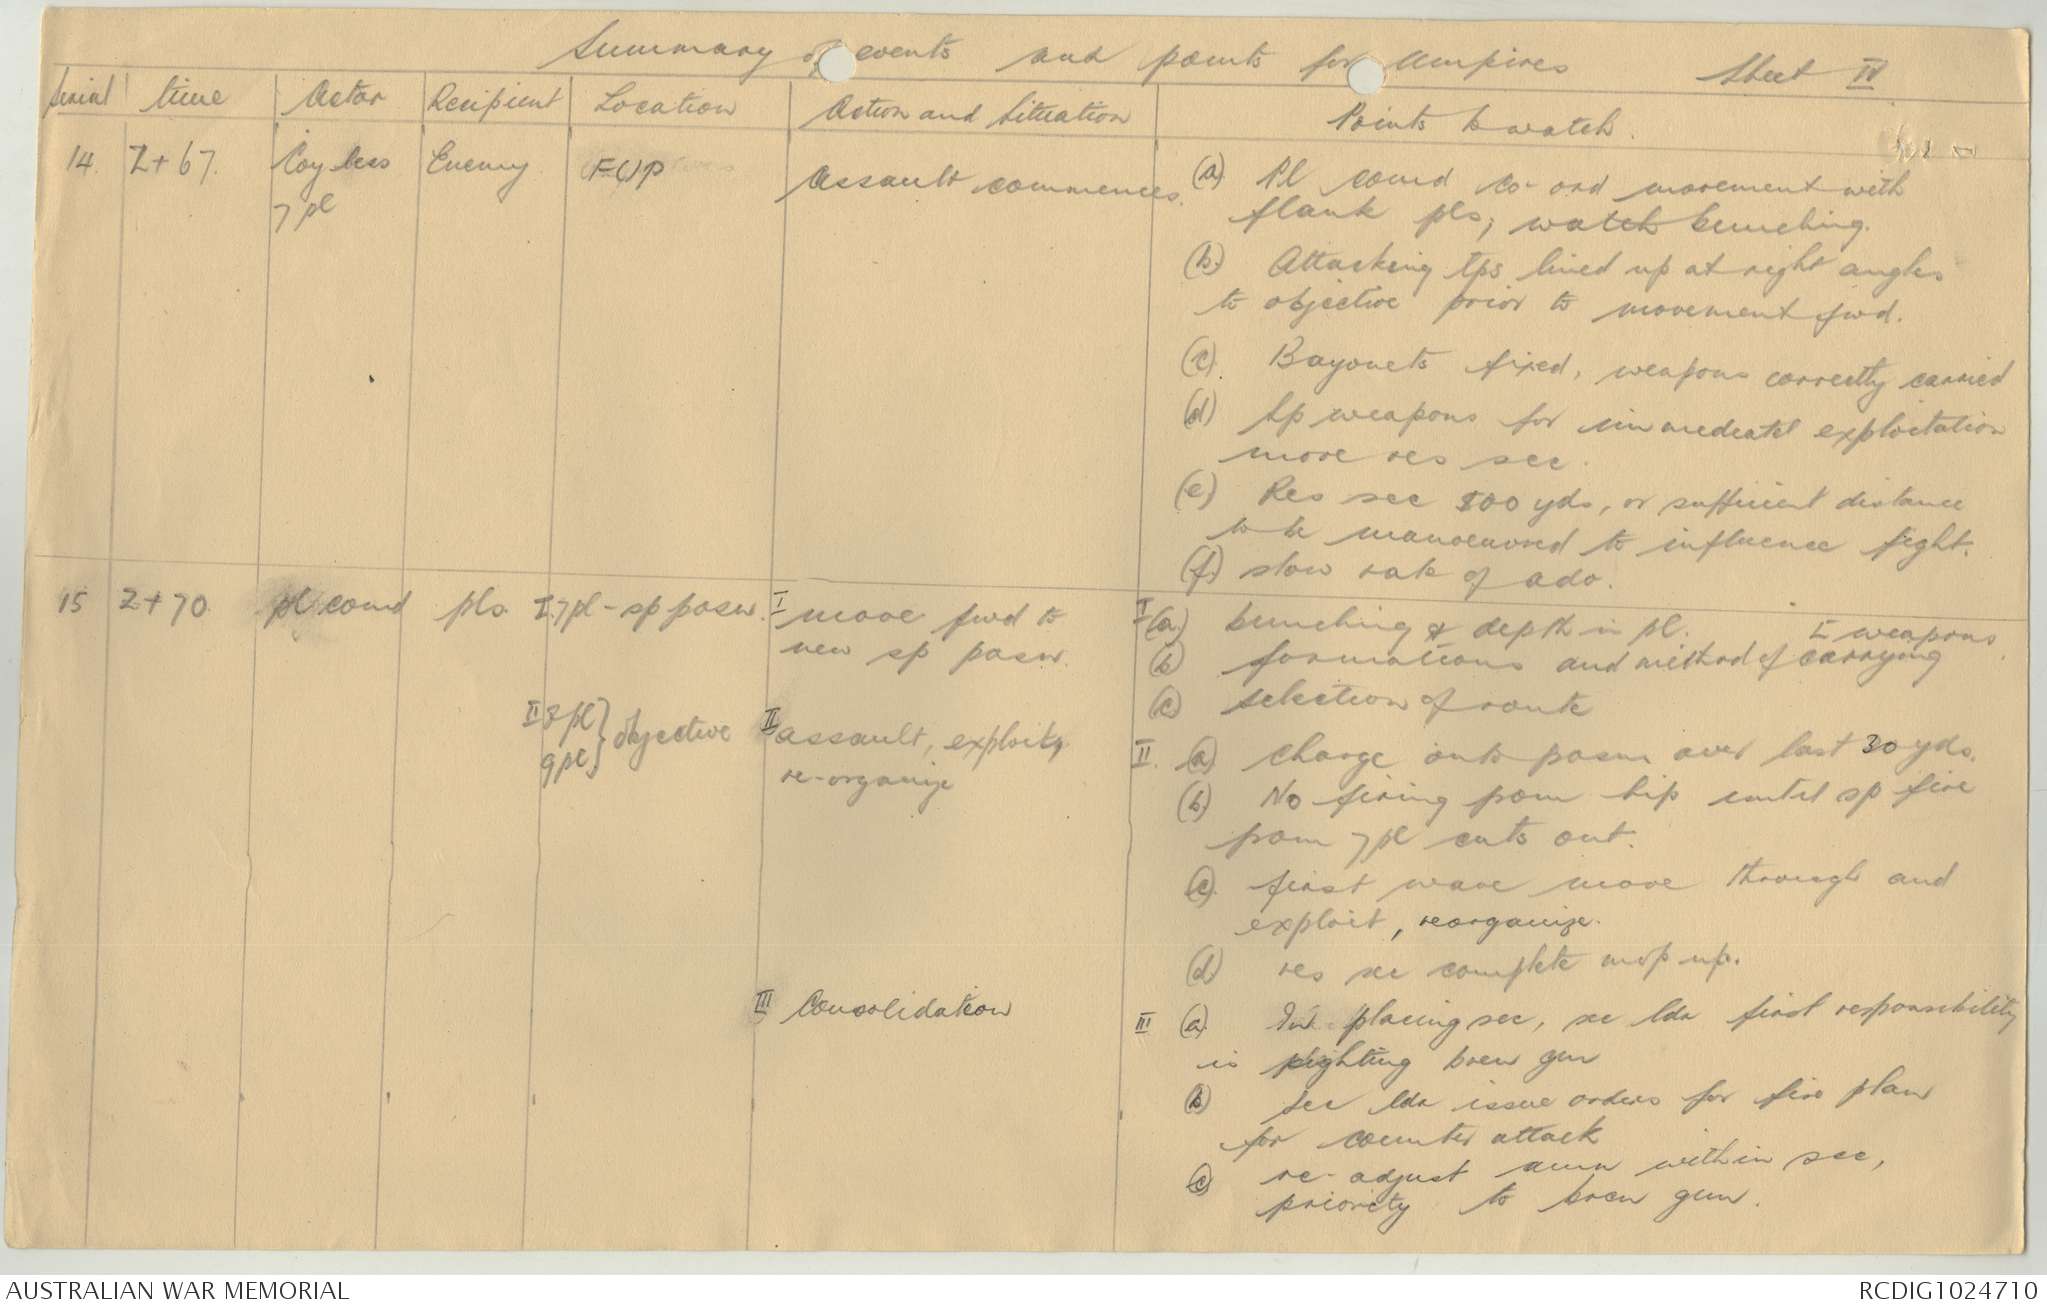 Summary of events and points for Umpires Sheet IV
Serial time Actor Recipient Location Action and Situation Points to watch.
14. Z+67. Coy less Enemy FUP Assault commences.
7 pl
(a) Pl comd co-ord movement with
flank pls; watch bunching.
(b.) Attacking tps lined up at right angles
to objective prior to movement fwd.
(c). Bayonets fixed, weapons correctly carried
(d) Sp weapons for immediate exploitation
more res sec.
(e) Res sec 100 yds, or sufficient distance
to be manoeuvred to influence fight.
(f.) slow rate of adv.
15 Z+70. pl comd pls. I. 7pl - sp posn. I move fwd to
new sp posn.
II 8 pl } objective II assault, exploit,
9 pl } re-organize
III Consolidation
I (a.) bunching & depth in pl.
(b) formations and method of carrying weapons.
(c) selection of route
II. (a) charge onto posn over last 30 yds.
(b.) No firing from hip until sp fire
from 7 pl cuts out.
(c). first wave move through and
exploit, reorganize.
(d.) res sec complete mop up.
III (a). In placing sec, sec ldr first responsibility
is sighting bren gun
(b) Sec ldr issue orders for fire plan
for counter attack
(c) re-adjust amn within sec,
priority to bren gun.
AUSTRALIAN WAR MEMORIAL RCDIG1024710